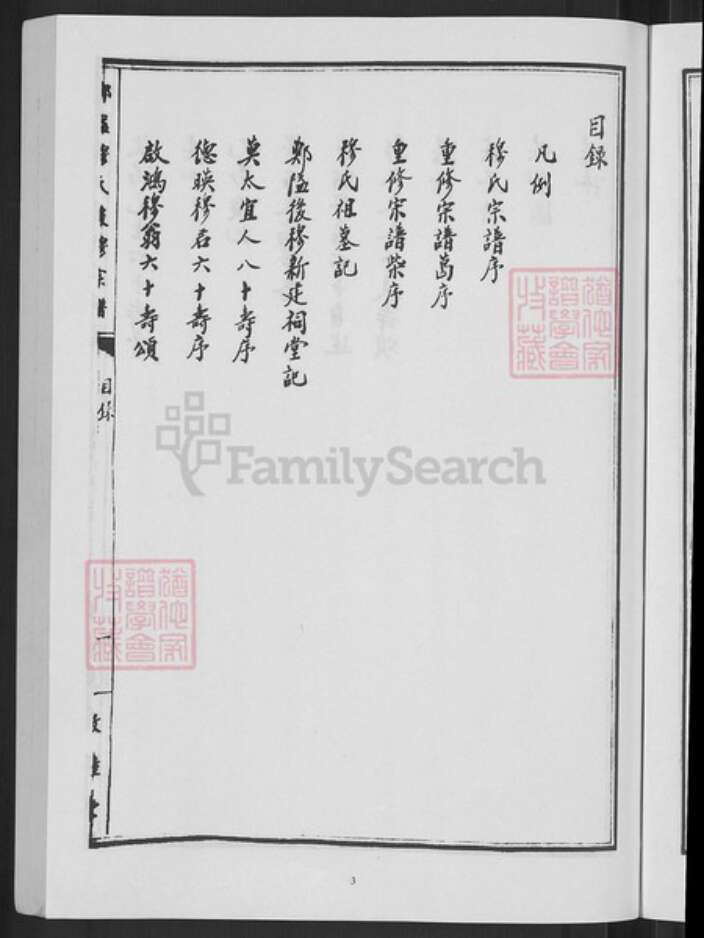 目錄
凡例
穆氏宗譜序
重修宗譜萬序
重修宗譜柴序
穆氏祖墓記
鄭隘後穆新建祠堂記
莫太宜人八十壽序
德暎穆君六十壽序
啟鴻穆翁六十壽頌
目錄
一
3
FamilySearch